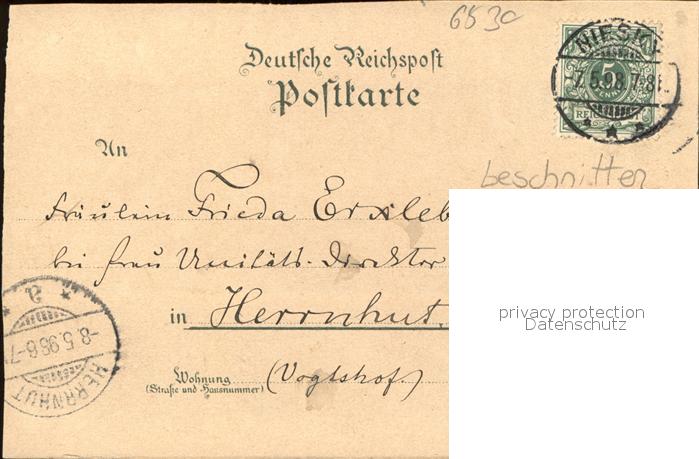 6530
Deutsche Reichspost
Postkarte
NIESKY
7.5.98.7-8
5
REICHSPOST
An
beschnitten
Fräulein Frieda Erxleb
bei Frau Unitäts-Direktor
in Herrnhut.
Wohnung (Vogtshof.)
(Straße und Hausnummer)
HERRNHUT
8.5.98.6-7
privacy protection
Datenschutz